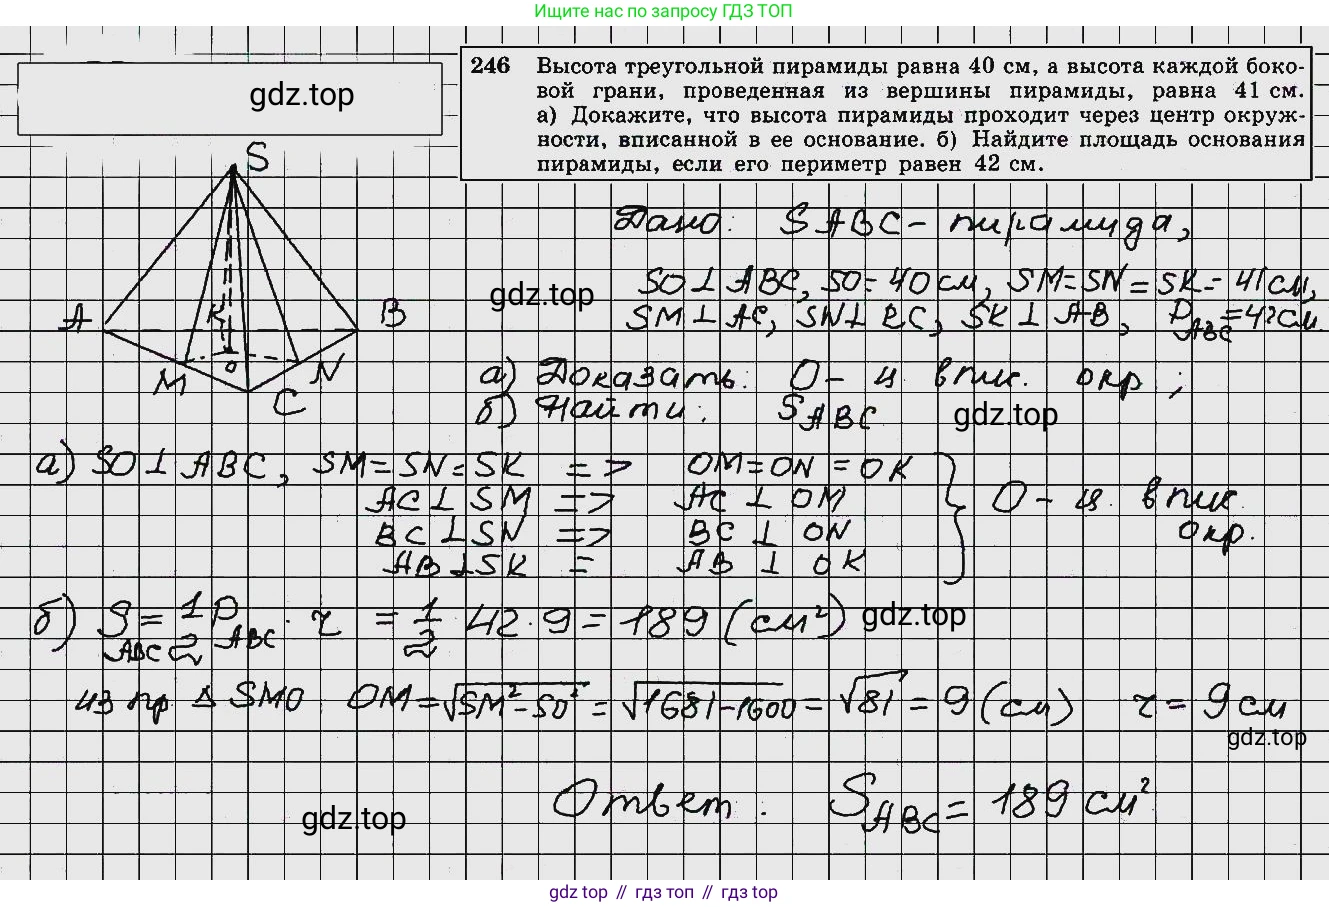 Ищите нас по запросу ГДЗ ТОП
gdz.top
246 Высота треугольной пирамиды равна 40 см, а высота каждой боко-
вой грани, проведенная из вершины пирамиды, равна 41 см.
а) Докажите, что высота пирамиды проходит через центр окруж-
ности, вписанной в ее основание. б) Найдите площадь основания
пирамиды, если его периметр равен 42 см.
S
A
K
B
O
M
N
C
Дано: SABC - пирамида,
gdz.top
SO⊥ABC, SO=40см, SM=SN=SK=41см,
SM⊥AC, SN⊥BC, SK⊥AB, P_ABC=42см.
а) Доказать: O - ц впис. окр;
б) Найти: S_ABC
gdz.top
а) SO⊥ABC, SM=SN=SK => OM=ON=OK
AC⊥SM => AC⊥OM
BC⊥SN => BC⊥ON
AB⊥SK = AB⊥OK
} O - ц. впис.
окр.
б) S_ABC = 1/2 P_ABC · r = 1/2 · 42 · 9 = 189 (см²)
gdz.top
из пр. Δ SMO OM = √SM²-SO² = √1681-1600 = √81 = 9 (см) r = 9 см
gdz.top
Ответ: S_ABC = 189 см²
gdz.top
gdz top // гдз топ // gdz top